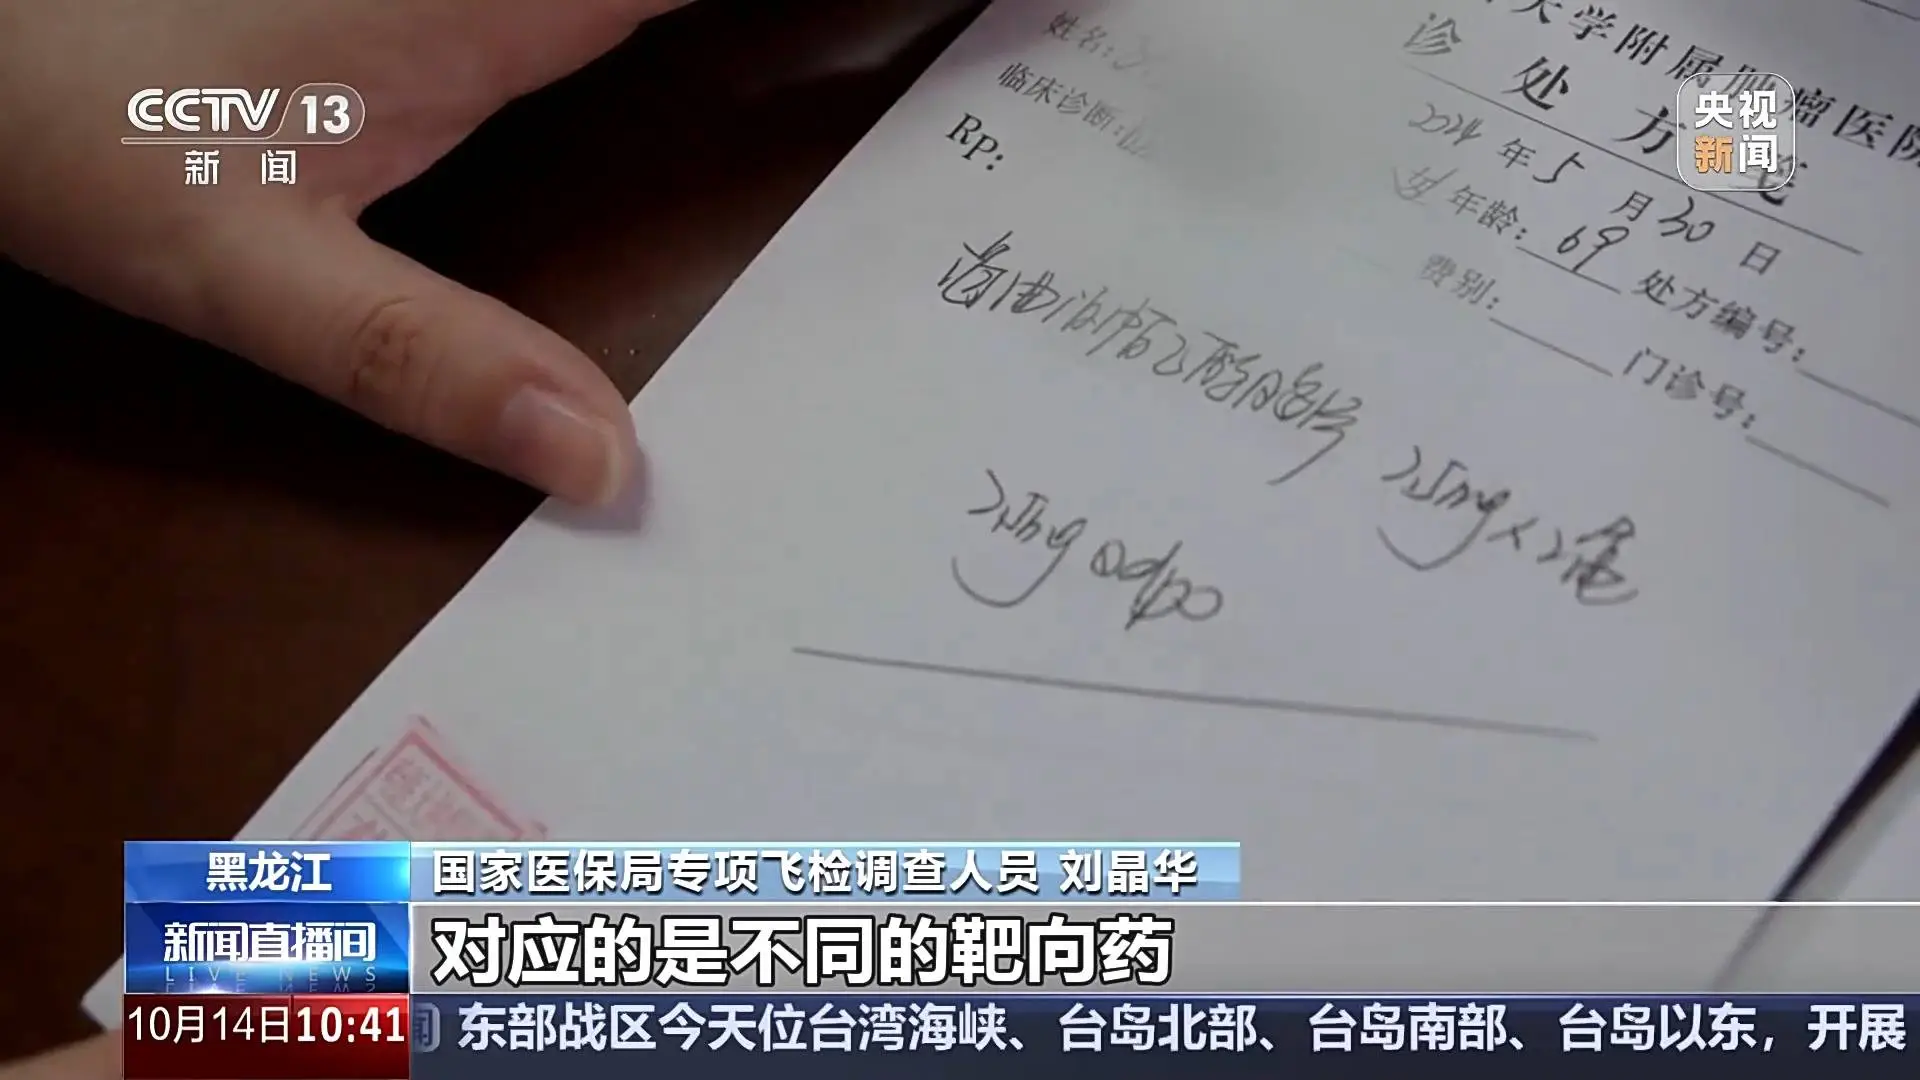 CCTV 13
新闻
央视
新闻
大学附属肿瘤医院
诊处方笺
2024年5月30日
姓名:
女 年龄: 69 处方编号:
临床诊断:
费别: 门诊号:
Rp:
25mg×2盒
25mg Qd po
黑龙江
国家医保局专项飞检调查人员 刘晶华
新闻直播间
LIVE NEWS
对应的是不同的靶向药
10月14日10:41
东部战区今天位台湾海峡、台岛北部、台岛南部、台岛以东，开展